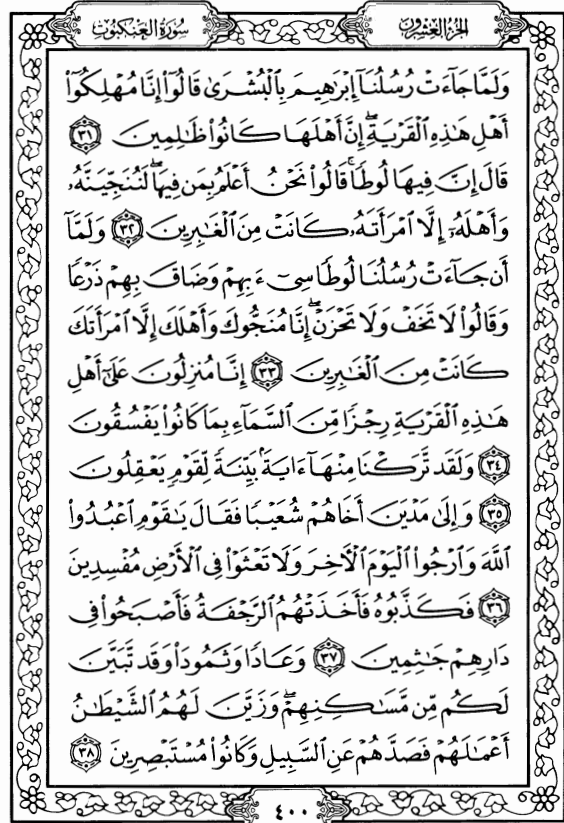 سُورَةُ العَنكَبُوتِ
الجُزءُ العِشْرُونَ
وَلَمَّا جَآءَتْ رُسُلُنَآ إِبْرَٰهِيمَ بِٱلْبُشْرَىٰ قَالُوٓا۟ إِنَّا مُهْلِكُوٓا۟
أَهْلِ هَـٰذِهِ ٱلْقَرْيَةِ ۖ إِنَّ أَهْلَهَا كَانُوا۟ ظَـٰلِمِينَ ٣١
قَالَ إِنَّ فِيهَا لُوطًا ۚ قَالُوا۟ نَحْنُ أَعْلَمُ بِمَن فِيهَا ۖ لَنُنَجِّيَنَّهُۥ
وَأَهْلَهُۥٓ إِلَّا ٱمْرَأَتَهُۥ كَانَتْ مِنَ ٱلْغَـٰبِرِينَ ٣٢ وَلَمَّآ
أَن جَآءَتْ رُسُلُنَا لُوطًا سِىٓءَ بِهِمْ وَضَاقَ بِهِمْ ذَرْعًا
وَقَالُوا۟ لَا تَخَفْ وَلَا تَحْزَنْ ۖ إِنَّا مُنَجُّوكَ وَأَهْلَكَ إِلَّا ٱمْرَأَتَكَ
كَانَتْ مِنَ ٱلْغَـٰبِرِينَ ٣٣ إِنَّا مُنزِلُونَ عَلَىٰٓ أَهْلِ
هَـٰذِهِ ٱلْقَرْيَةِ رِجْزًا مِّنَ ٱلسَّمَآءِ بِمَا كَانُوا۟ يَفْسُقُونَ
٣٤ وَلَقَد تَّرَكْنَا مِنْهَآ ءَايَةًۢ بَيِّنَةً لِّقَوْمٍ يَعْقِلُونَ
٣٥ وَإِلَىٰ مَدْيَنَ أَخَاهُمْ شُعَيْبًا فَقَالَ يَـٰقَوْمِ ٱعْبُدُوا۟
ٱللَّهَ وَٱرْجُوا۟ ٱلْيَوْمَ ٱلْـَٔاخِرَ وَلَا تَعْثَوْا۟ فِى ٱلْأَرْضِ مُفْسِدِينَ
٣٦ فَكَذَّبُوهُ فَأَخَذَتْهُمُ ٱلرَّجْفَةُ فَأَصْبَحُوا۟ فِى
دَارِهِمْ جَـٰثِمِينَ ٣٧ وَعَادًا وَثَمُودَا۟ وَقَد تَّبَيَّنَ
لَكُم مِّن مَّسَـٰكِنِهِمْ ۖ وَزَيَّنَ لَهُمُ ٱلشَّيْطَـٰنُ
أَعْمَـٰلَهُمْ فَصَدَّهُمْ عَنِ ٱلسَّبِيلِ وَكَانُوا۟ مُسْتَبْصِرِينَ ٣٨
٤٠٠